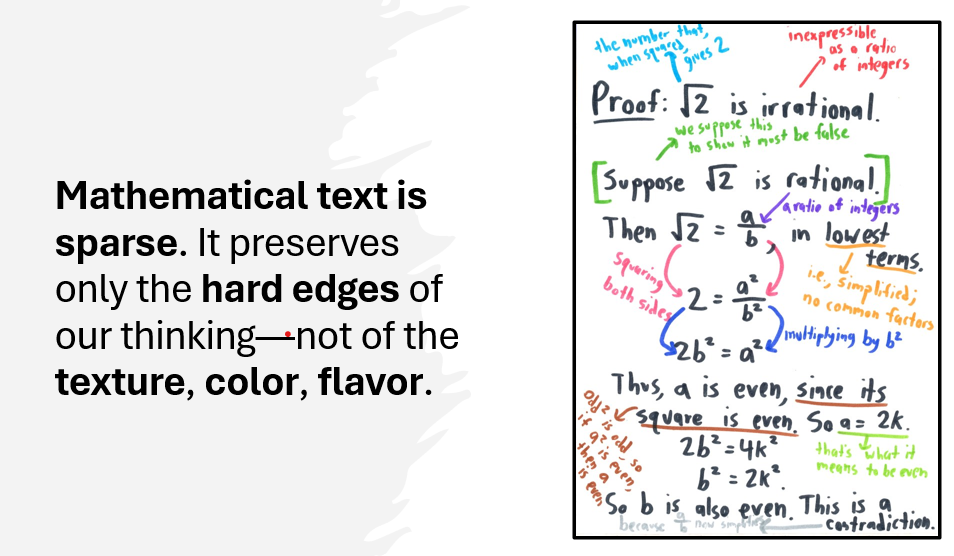 Mathematical text is
sparse. It preserves
only the hard edges of
our thinking—not of the
texture, color, flavor.
the number that,
when squared,
gives 2
inexpressible
as a ratio
of integers
Proof: √2 is irrational.
we suppose this
to show it must be false
[Suppose √2 is rational.]
a ratio of integers
Then √2 = a/b, in lowest
terms.
squaring
both sides
i.e., simplified;
no common factors
2 = a²/b²
multiplying by b²
2b² = a²
Thus, a is even, since its
square is even. So a = 2k.
odd² is odd so
if a² is even,
then a
is even
that's what it
means to be even
2b² = 4k²
b² = 2k².
So b is also even. This is a
contradiction.
because a/b now simplifies